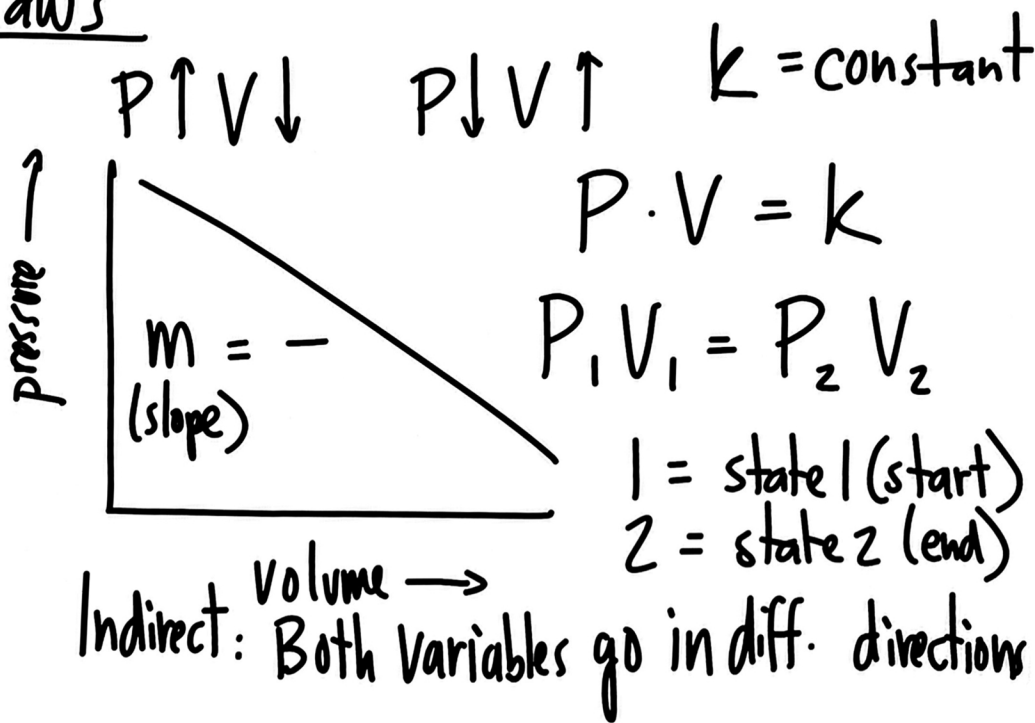 aws
P↑V↓ P↓V↑ k = constant
P · V = k
pressure →
m = −
(slope)
P₁V₁ = P₂V₂
1 = state 1 (start)
2 = state 2 (end)
Volume →
Indirect: Both variables go in diff. directions